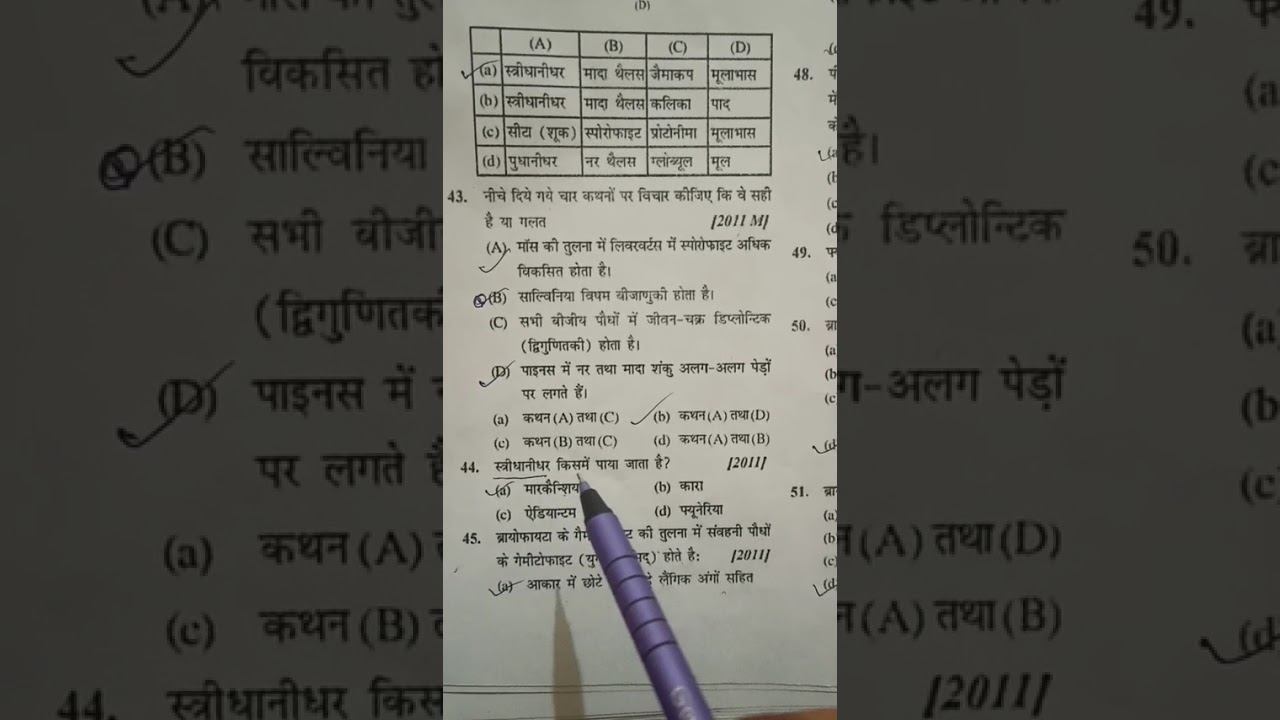 (D)
(A) (B) (C) (D)
(a) स्त्रीधानीधर मादा थैलस जैमाकप मूलाभास
(b) स्त्रीधानीधर मादा थैलस कलिका पाद
(c) सीटा (शूक) स्पोरोफाइट प्रोटोनीमा मूलाभास
(d) पुधानीधर नर थैलस ग्लोब्यूल मूल
43. नीचे दिये गये चार कथनों पर विचार कीजिए कि वे सही
है या गलत [2011 M]
(A) मॉस की तुलना में लिवरवर्टस में स्पोरोफाइट अधिक
विकसित होता है।
(B) साल्विनिया विषम बीजाणुकी होता है।
(C) सभी बीजीय पौधों में जीवन-चक्र डिप्लोन्टिक
(द्विगुणितकी) होता है।
(D) पाइनस में नर तथा मादा शंकु अलग-अलग पेड़ों
पर लगते हैं।
(a) कथन (A) तथा (C) (b) कथन (A) तथा (D)
(c) कथन (B) तथा (C) (d) कथन (A) तथा (B)
44. स्त्रीधानीधर किसमें पाया जाता है? [2011]
(a) मारकैन्शिय (b) कारा
(c) ऐडियान्टम (d) फ्यूनेरिया
45. ब्रायोफायटा के की तुलना में संवहनी पौधों
के गेमीटोफाइट होते है: [2011]
(a) आकार में छोटे लैंगिक अंगों सहित
48.
49.
50.
51.